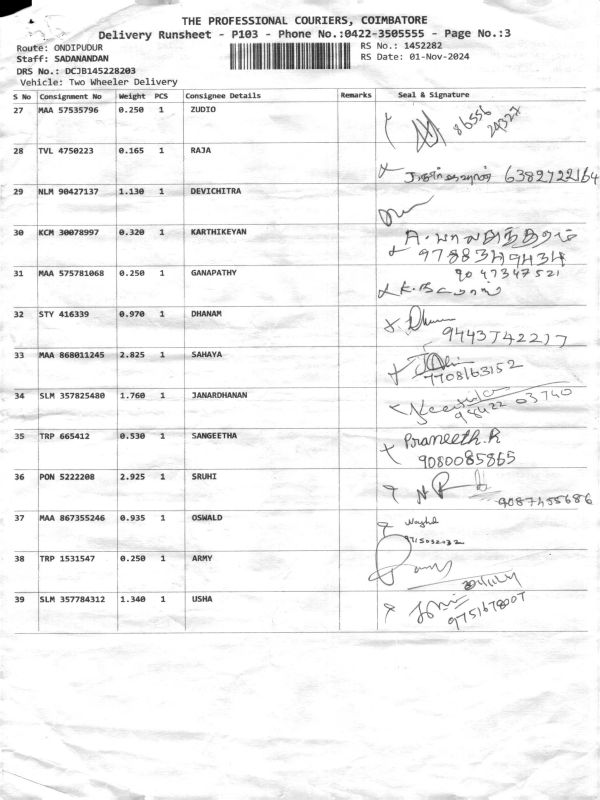 THE PROFESSIONAL COURIERS, COIMBATORE
Delivery Runsheet - P103 - Phone No.:0422-3505555 - Page No.:3
Route: ONDIPUDUR
RS No.: 1452282
Staff: SADANANDAN
RS Date: 01-Nov-2024
DRS No.: DCJB145228203
Vehicle: Two Wheeler Delivery
S No Consignment No Weight PCS Consignee Details Remarks Seal & Signature
27 MAA 57535796 0.250 1 ZUDIO 86556
28 TVL 4750223 0.165 1 RAJA 6382722164
29 NLM 90427137 1.130 1 DEVICHITRA
30 KCM 30078997 0.320 1 KARTHIKEYAN A.
9788349434
31 MAA 575781068 0.250 1 GANAPATHY 9047347521
32 STY 416339 0.970 1 DHANAM
9443742217
33 MAA 868011245 2.825 1 SAHAYA
7708163152
34 SLM 357825480 1.760 1 JANARDHANAN
98422 03740
35 TRP 665412 0.530 1 SANGEETHA Praneeth.R
9080085865
36 PON 5222208 2.925 1 SRUHI
9087455686
37 MAA 867355246 0.935 1 OSWALD
38 TRP 1531547 0.250 1 ARMY
39 SLM 357784312 1.340 1 USHA
9751678007